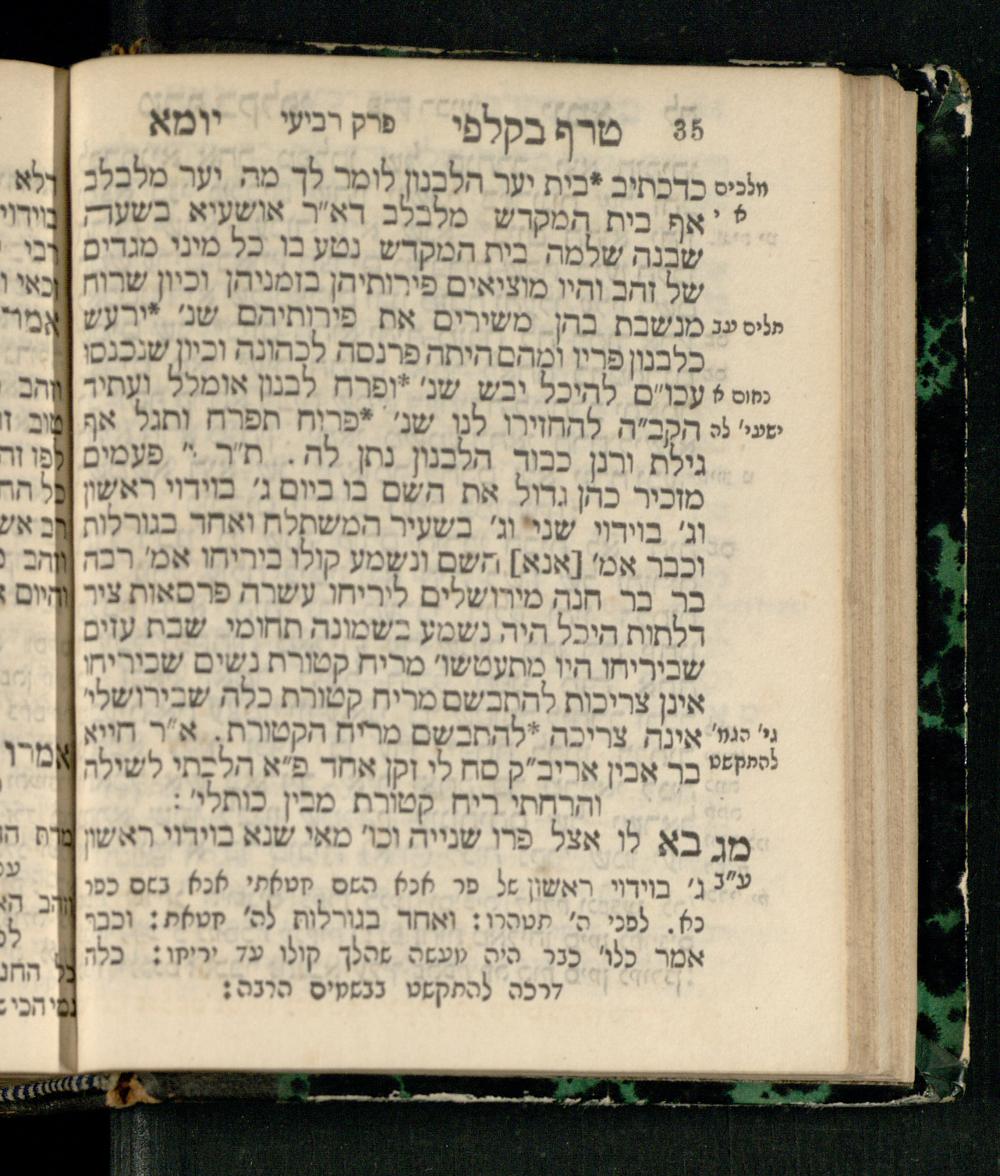 35 טרף בקלפי פרק רביעי יומא
מלכים כדכתיב *בית יער הלבנון לומר לך מה יער מלבלב
א י' אף בית המקדש מלבלב דא״ר אושעיא בשעה
שבנה שלמה בית המקדש נטע בו כל מיני מגדים
של זהב והיו מוציאים פירותיהן בזמניהן וכיון שרוח
תלים עב מנשבת בהן משירים את פירותיהם שנ׳ *ירעש
כלבנון פריו ומהם היתה פרנסה לכהונה וכיון שנכנסו
נחום א עכו״ם להיכל יבש שנ׳ *ופרח לבנון אומלל ועתיד
ישעי׳ לה הקב״ה להחזירו לנו שנ׳ *פרוח תפרח ותגל אף
גילת ורנן כבוד הלבנון נתן לה. ת״ר י׳ פעמים
מזכיר כהן גדול את השם בו ביום ג׳ בוידוי ראשון
וג׳ בוידוי שני וג׳ בשעיר המשתלח ואחד בגורלות
וכבר אמ׳ [אנא] השם ונשמע קולו ביריחו אמ׳ רבה
בר בר חנה מירושלים ליריחו עשרה פרסאות ציר
דלתות היכל היה נשמע בשמונה תחומי שבת עזים
שביריחו היו מתעטשו׳ מריח קטורת נשים שביריחו
אינן צריכות להתבשם מריח קטורת כלה שבירושלי׳
גי׳ הגמ׳ אינה צריכה *להתבשם מריח הקטורת. א״ר חייא
להתקשט בר אבין אריב״ק סח לי זקן אחד פ״א הלכתי לשילה
והרחתי ריח קטורת מבין כותלי׳:
מג בא לו אצל פרו שנייה וכו׳ מאי שנא בוידוי ראשון
ע״ב ג׳ בוידוי ראשון של פר אנא השם חטאתי אנא בשם כפר
נא. לפני ה׳ תטהרו: ואחד בגורלות לה׳ חטאת: וכבר
אמר כלו׳ כבר היה מעשה שהלך קולו עד יריחו: כלה
דרכה להתקשט בבשמים הרבה: